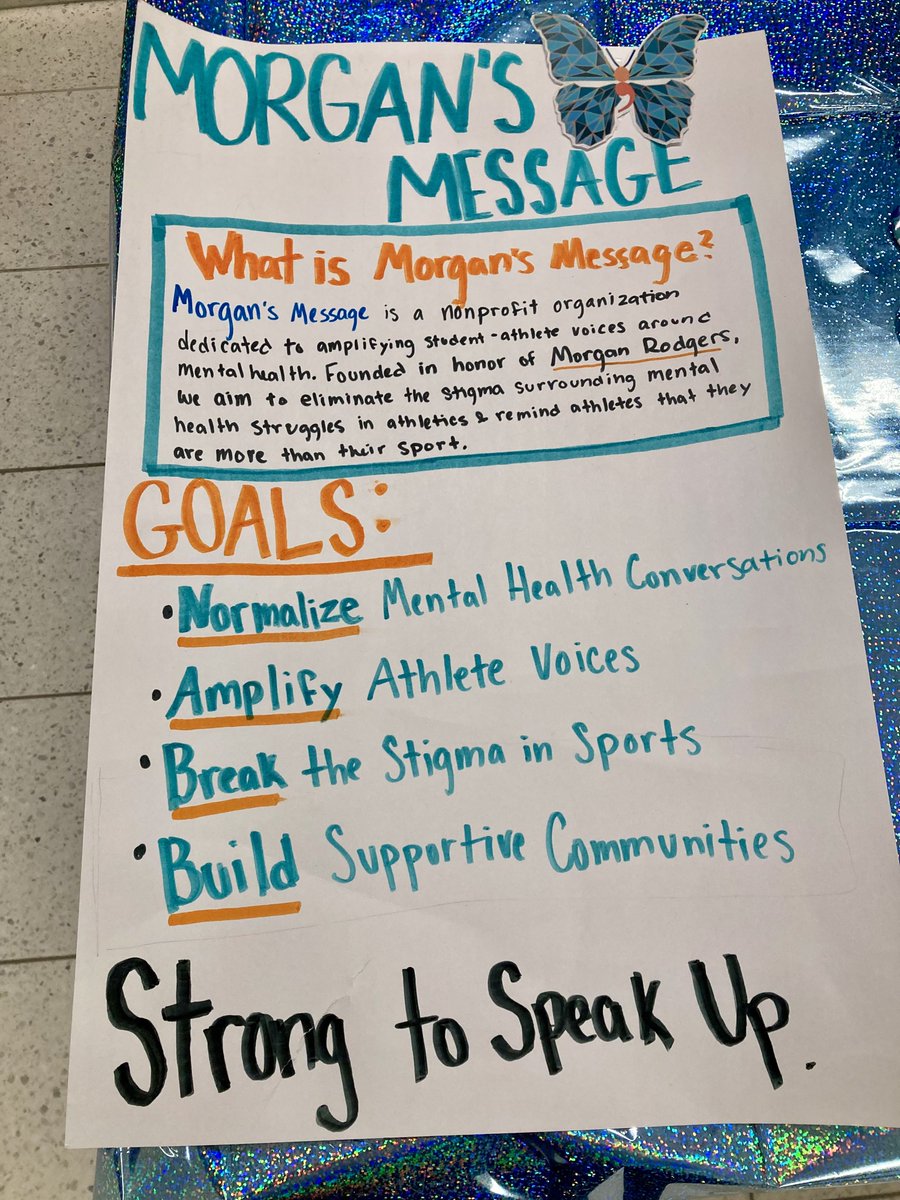 MORGAN'S
MESSAGE
What is Morgan's Message?
Morgan's Message is a nonprofit organization
dedicated to amplifying student-athlete voices around
mental health. Founded in honor of Morgan Rodgers,
we aim to eliminate the stigma surrounding mental
health struggles in athletics & remind athletes that they
are more than their sport.
GOALS:
• Normalize Mental Health Conversations
• Amplify Athlete Voices
• Break the Stigma in Sports
• Build Supportive Communities
Strong to Speak Up.